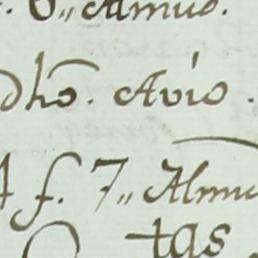 6,, Almud.
dhō. Avio.
f. 7,, Almu
tas